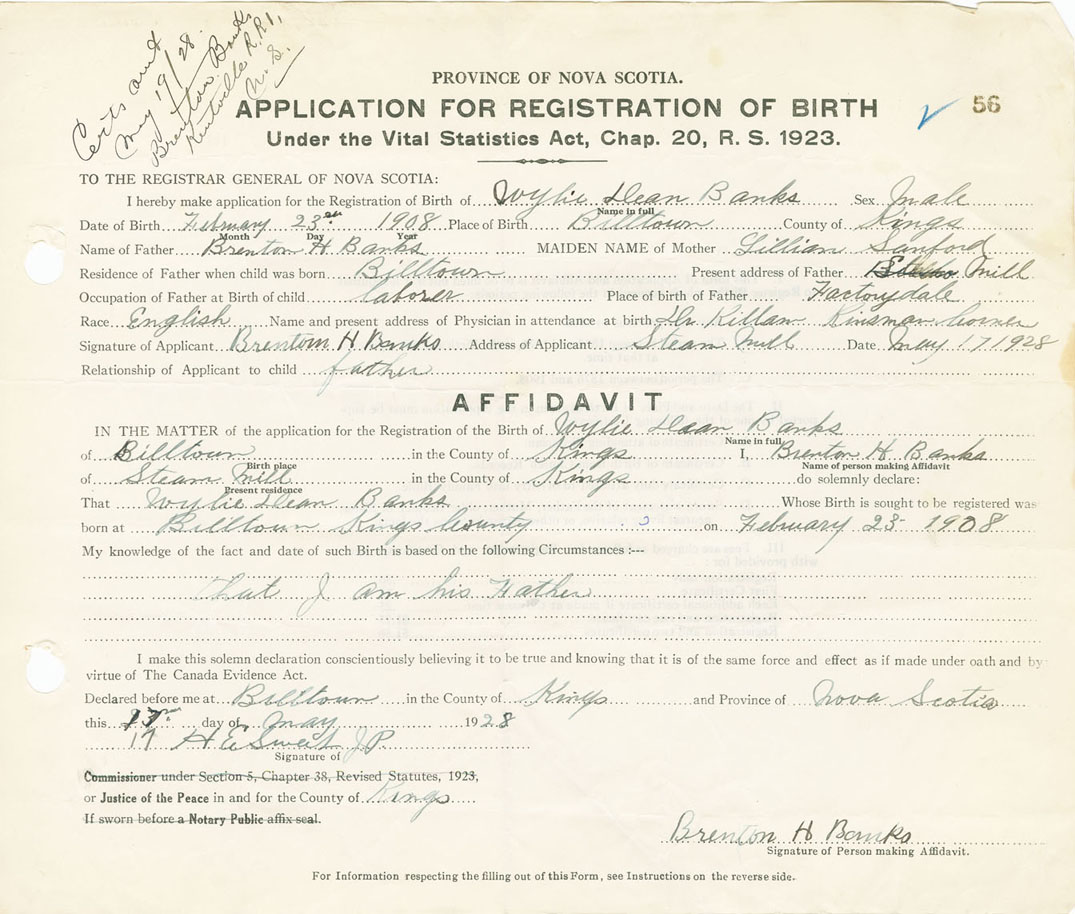 Certs out
May 19/28.
Brenton Banks
Kentville R.R.1.
N.S.
PROVINCE OF NOVA SCOTIA.
APPLICATION FOR REGISTRATION OF BIRTH
56
Under the Vital Statistics Act, Chap. 20, R. S. 1923.
TO THE REGISTRAR GENERAL OF NOVA SCOTIA:
I hereby make application for the Registration of Birth of Wylie Dean Banks Sex Male
Name in full
Date of Birth February 23rd 1908 Place of Birth Billtown County of Kings
Month Day Year
Name of Father Brenton H Banks MAIDEN NAME of Mother Lillian Sanford
Residence of Father when child was born Billtown Present address of Father Mill
Occupation of Father at Birth of child laborer Place of birth of Father Factorydale
Race English Name and present address of Physician in attendance at birth Dr Killam Kinsman Corner
Signature of Applicant Brenton H Banks Address of Applicant Steam Mill Date May 17 1928
Relationship of Applicant to child father
AFFIDAVIT
IN THE MATTER of the application for the Registration of the Birth of Wylie Dean Banks
Name in full
of Billtown in the County of Kings I, Brenton H Banks
Birth place Name of person making Affidavit
of Steam Mill in the County of Kings do solemnly declare:
Present residence
That Wylie Dean Banks Whose Birth is sought to be registered was
born at Billtown Kings County on February 23 1908
My knowledge of the fact and date of such Birth is based on the following Circumstances :---
That I am his Father
I make this solemn declaration conscientiously believing it to be true and knowing that it is of the same force and effect as if made under oath and by
virtue of The Canada Evidence Act.
Declared before me at Billtown in the County of Kings and Province of Nova Scotia
this day of May 1928
17 H E Sweet J.P.
Signature of
Commissioner under Section 5, Chapter 38, Revised Statutes, 1923,
or Justice of the Peace in and for the County of Kings
If sworn before a Notary Public affix seal.
Brenton H Banks
Signature of Person making Affidavit.
For Information respecting the filling out of this Form, see Instructions on the reverse side.